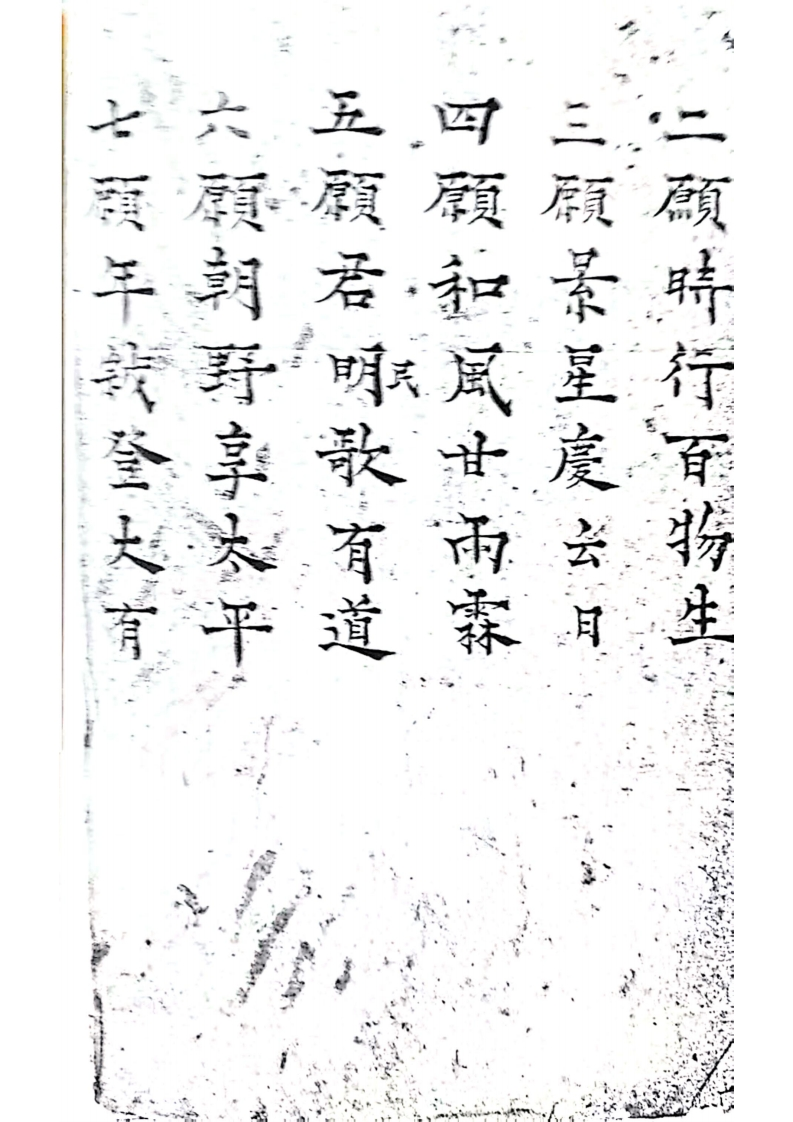 二願時行百物生
三願景星慶云日
四願和風甘雨霖
五願君明民歌有道
六願朝野享太平
七願年登大有